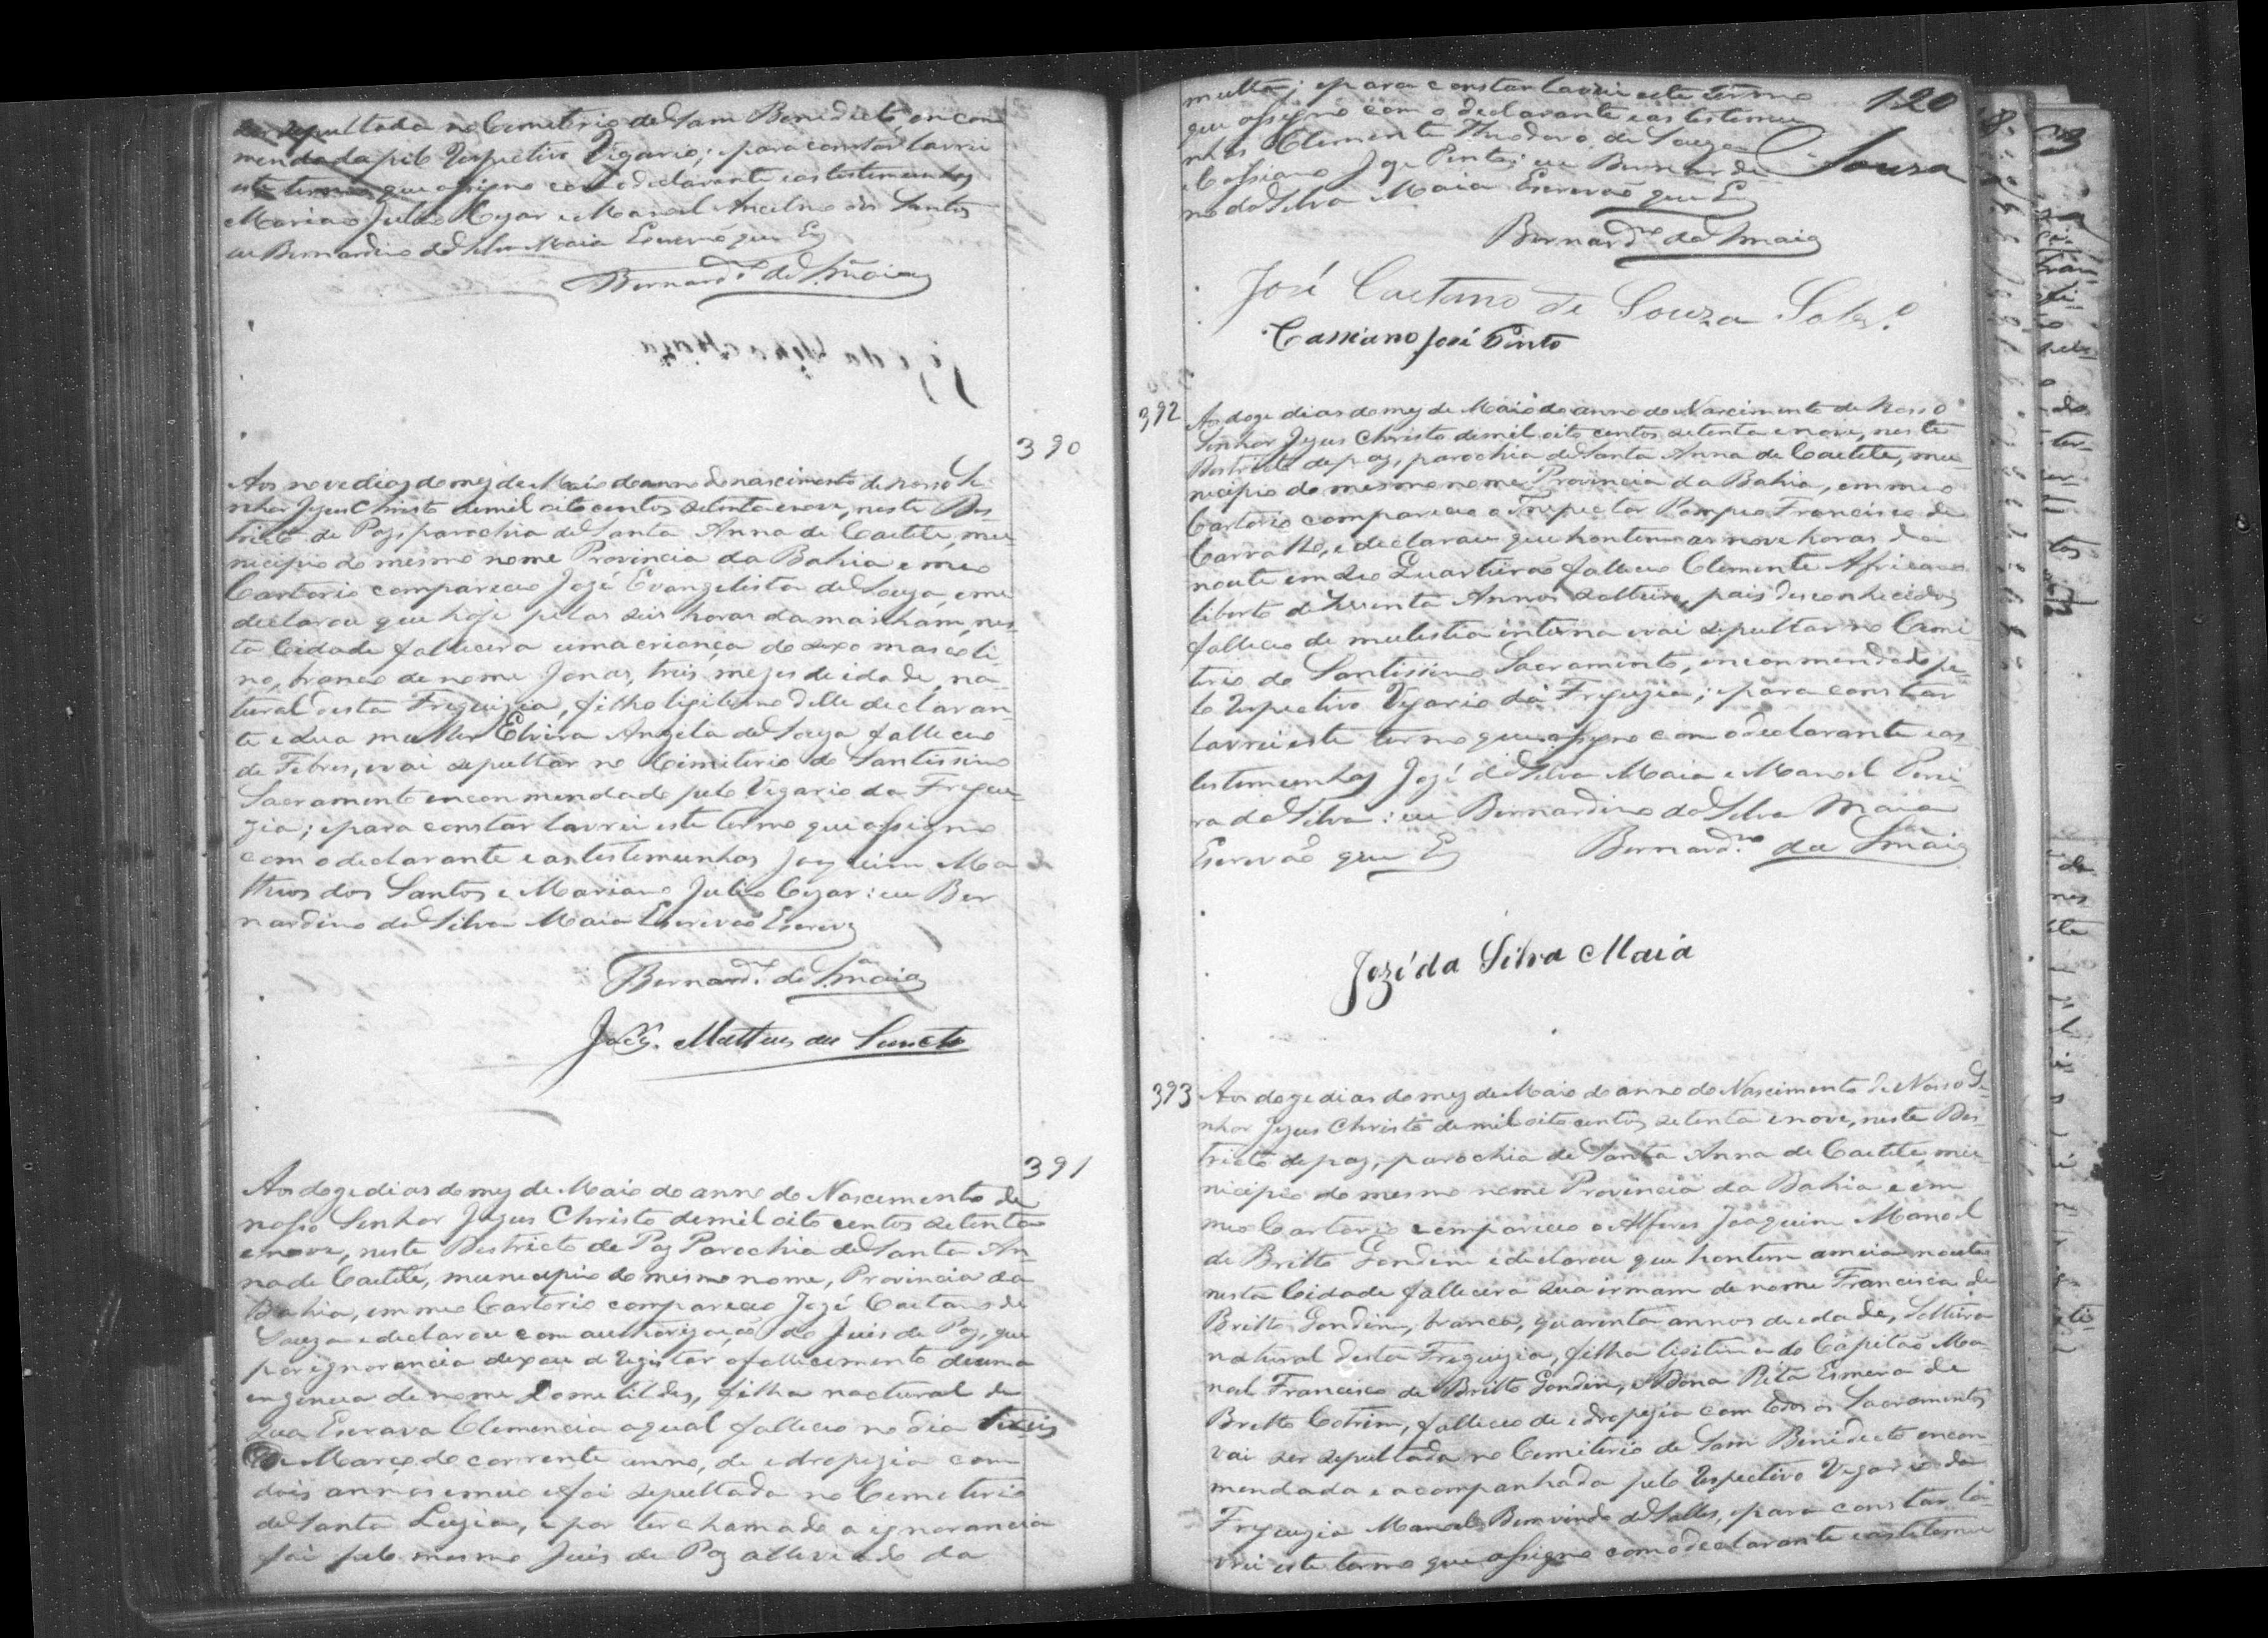 ser sepultada no Cemiterio de Sam Benedicto, encom
mendada pelo respectivo Vigario; e para constar lavrei
este termo que assigno com o declarante e as testemunhas
Mariano Julio Cezar e Manoel Anselmo dos Santos
eu Bernardino da Silva Maia Escrivão que Es
Bernard.º da S.ª Maia
390
Aos nove dias do mez de Maio do anno do nascimento de nosso Se
nhor Jezus Christo de mil oito centos setenta e nove, neste Des
tricto de Paz, parochia de Santa Anna de Caetité, mu
nicipio do mesmo nome Provincia da Bahia e meo
Cartorio compareceo Jozé Evangelista de Souza, e me
declarou que hoje pelas seis horas da manham, nes
ta Cidade fallecera uma criança do sexo mascoli
no, branco de nome Jonas, tres mezes de idade, na
tural desta Freguizia, filho ligitimo delle declaran
te e sua mulher Elvira Angela de Souza falleceo
de Febres, e vai sepultar no Cimiterio do Santissimo
Sacramento encommendado pelo Vigario da Fregue
zia; e para constar lavrei este termo que assigno
com o declarante e as testemunhas Joaquim Ma
theos dos Santos e Mariano Julio Cezar: eu Ber
nardino da Silva Maia Escrivão Escrevy
Bernard.º da S.ª Maia
Joaq. Mattheus dos Sanctos
391
Aos doze dias do mez de Maio do anno do Nascimento de
nosso Senhor Jezus Christo de mil oito centos setenta
e nove, neste Destricto de Paz Parochia de Santa An
na de Caetité, municipio do mesmo nome, Provincia da
Bahia, em meo Cartorio compareceo Jozé Caetano de
Souza e declarou com authorização do Juis de Paz, que
por ignorancia dexou de registar o fallecimento de uma
engenua de nome Dometildes, filha nactural de
sua Escrava Clemencia a qual falleceo no dia
de Março do corrente anno, de edropezia com
dois annos e meio e foi sepultada no Cemeterio
de Santa Luzia, e por ter chamado a ignorancia
foi pelo mesmo Juis de Paz alleviado da
120
multa; e para constar lavrei este termo
que assigno com o declarante e as testemu
nhas Clemente Theodoro de Souza
e Cassiano Joze Pinto; eu Bernardi
no da Silva Maia Escrevão que Es
Souza
Bernard.no da S.ª Maia
José Caetano de Souza Sobr.º
Cassiano José Pinto
392
Aos doze dias do mez de Maio do anno do Nascimento de Nosso
Senhor Jezus Christo de mil oito centos setenta e nove, neste
Destricto de paz, parochia de Santa Anna de Caetité, mu
nicipio do mesmo nome Provincia da Bahia, em meo
Cartorio compareceo o Inspector Pompeo Francisco de
Carvalho, e declarou que hontem as nove horas da
noute em seo Quarteirão falleceo Clemente Africano
liberto de Annos solteiro, pais desconhecidos
falleceo de mulestia interna e vai sepultar no Cemi
terio do Santissimo Sacramento, encommendado pe
lo respectivo Vigario da Freguzia; e para constar
lavrei este termo que assigno com o declarante e as
testemunhas Jozé da Silva Maia e Manoel Perei
ra da Silva: eu Bernardino da Silva Maia
Escrevão que Es Bernard.no da S.ª Maia
Jozé da Silva Maia
393
Aos doze dias do mez de Maio do anno do Nascimento de Nosso Se
nhor Jezus Christo de mil oito centos setenta e nove, neste Des
tricto de paz, parochia de Santa Anna de Caetité, mu
nicipio do mesmo nome Provincia da Bahia e em
meo Cartorio compareceo o Alferes Joaquim Manoel
de Britto Gondim e declarou que hontem a meia noute
nesta Cidade fallecera sua irmam de nome Francisca de
Britto Gondim, branca, quarenta annos de edade, Solteira
natural desta Freguizia, filha ligitima do Capitão Ma
noel Francisco de Britto Gondim, e Dona Rita Esmera de
Britto Cotrim, falleceo de edropezia com todos os Sacramentos
vai ser sepultada no Cemiterio de Sam Benedicto encom
mendada e acompanhada pelo respectivo Vigario da
Freguizia Manoel Bemvindo de Salles, e para constar la
vrei este termo que assigno com o declarante e as testemu